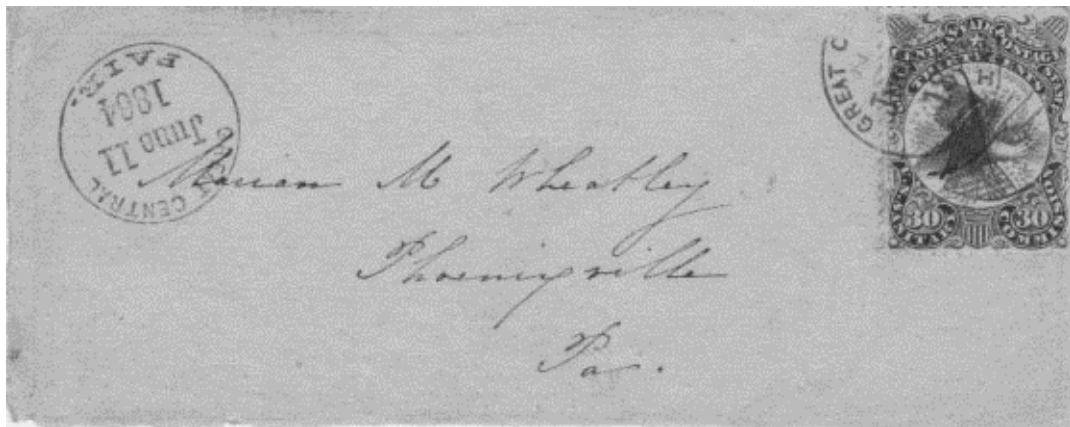 CENTRAL
FAIR.
June 11
1864
GREAT C
Marian M Wheatley
Phoenixville
Pa.
30
30